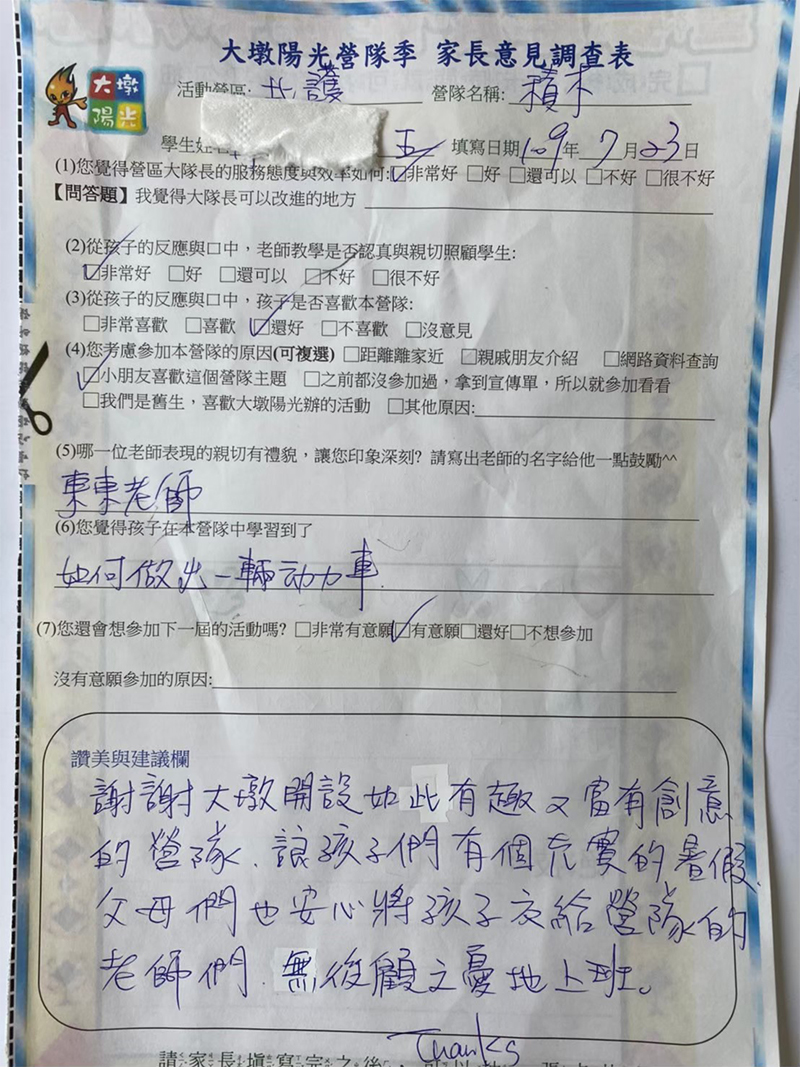 大墩陽光營隊季 家長意見調查表
大墩
陽光
活動營區: 北護 營隊名稱: 積木
學生姓名 五 填寫日期109年7月23日
(1)您覺得營區大隊長的服務態度與效率如何:☑非常好 □好 □還可以 □不好 □很不好
【問答題】我覺得大隊長可以改進的地方
(2)從孩子的反應與口中，老師教學是否認真與親切照顧學生:
☑非常好 □好 □還可以 □不好 □很不好
(3)從孩子的反應與口中，孩子是否喜歡本營隊:
□非常喜歡 □喜歡 ☑還好 □不喜歡 □沒意見
(4)您考慮參加本營隊的原因(可複選) □距離離家近 □親戚朋友介紹 □網路資料查詢
☑小朋友喜歡這個營隊主題 □之前都沒參加過，拿到宣傳單，所以就參加看看
□我們是舊生，喜歡大墩陽光辦的活動 □其他原因:
(5)哪一位老師表現的親切有禮貌，讓您印象深刻? 請寫出老師的名字給他一點鼓勵^^
東東老師
(6)您覺得孩子在本營隊中學習到了
如何做出一輛动力車.
(7)您還會想參加下一屆的活動嗎? □非常有意願☑有意願□還好□不想參加
沒有意願參加的原因:
讚美與建議欄
謝謝大墩開設如此有趣又富有創意
的營隊、讓孩子們有個充實的暑假、
父母們也安心將孩子交給營隊的
老師們、無後顧之憂地上班。
Thanks
請家長填寫完之後，